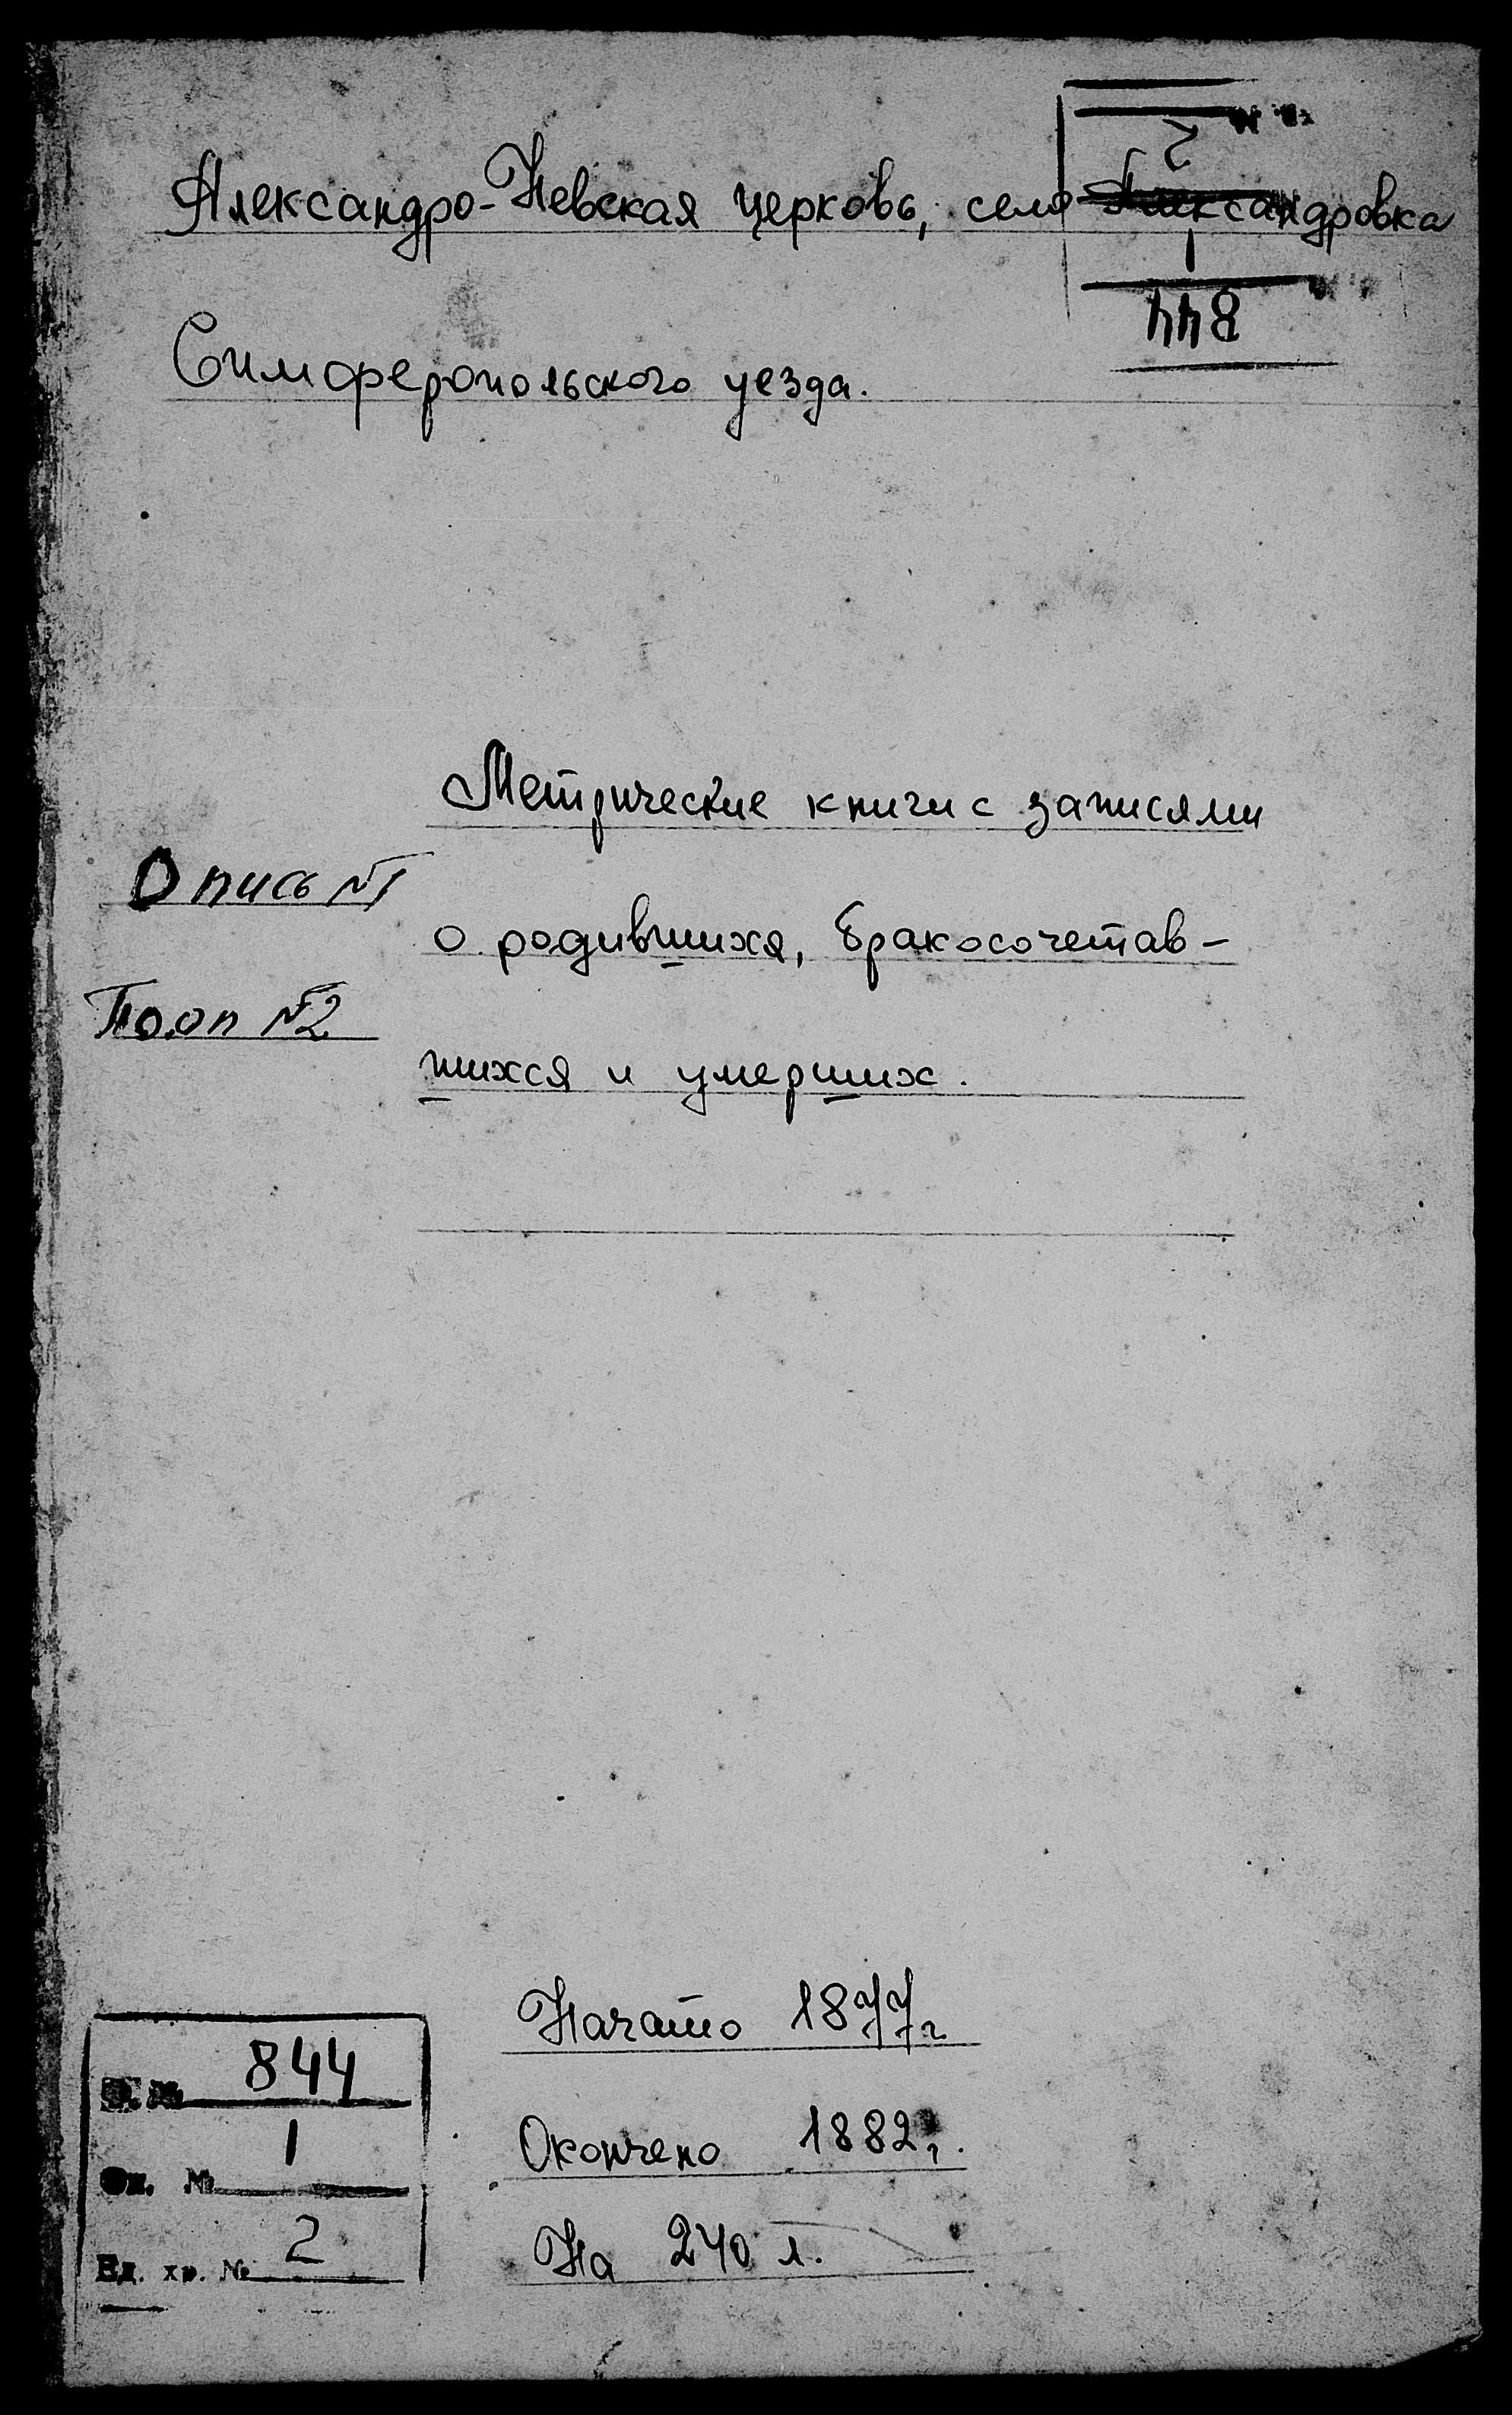 Александро-Невская церковь, село Александровка
Симферопольского уезда.
844
1
2
Метрические книги с записями
Опись №1
о родившихся, бракосочетав-
По оп №2
шихся и умерших.
Начато 1877г
Окончено 1882г.
На 240 л.
Ф. № 844
Оп. № 1
Ед. хр. № 2